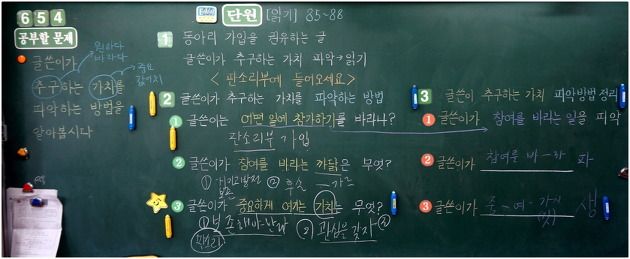 6 5 4
공부할 문제
원하다
바라다
주요
글쓴이가
추구하는 가치를
파악하는 방법을
알아봅시다
단원 [읽기] 85~88
1 동아리 가입을 권유하는 글
글쓴이가 추구하는 가치 파악→읽기
< 판소리부에 들어오세요>
2 글쓴이가 추구하는 가치를 파악하는 방법
1 글쓴이는 어떤 일에 참가하기를 바라나?
판소리부 가입
2 글쓴이가 참여를 바라는 까닭은 무엇?
3 글쓴이가 중요하게 여기는 가치는 무엇?
관심을 갖자
3 글쓴이 추구하는 가치 파악방법 정리
1 글쓴이가 참여를 바라는 일을 파악
2 글쓴이가 참여를 바
3 글쓴이가